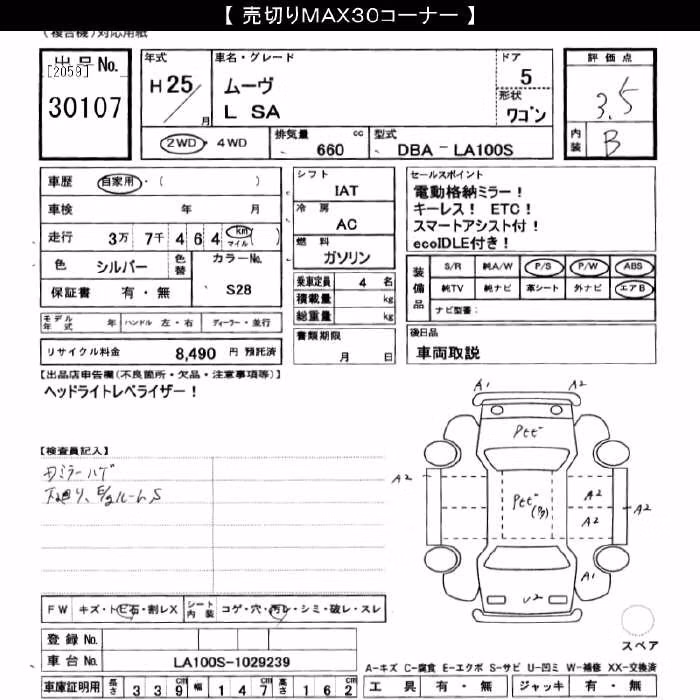 【 売切りMAX30コーナー 】
(複合機)対応用紙
出品No.
[2059]
30107
年式
H25/
月
車名・グレード
ムーヴ
L SA
ドア
5
形状
ワゴン
評価点
3.5
内装
B
2WD・4WD
排気量 cc
660
型式
DBA - LA100S
車歴 自家用・( )
車検 年 月
走行 3万 7千 4 6 4 km マイル ( )
色 シルバー 色替 カラーNo.
保証書 有・無 S28
シフト
IAT
冷房
AC
燃料
ガソリン
乗車定員 4 名
積載量 kg
総重量 kg
書類期限
月 日
セールスポイント
電動格納ミラー!
キーレス! ETC!
スマートアシスト付!
ecoIDLE付き!
装備品
S/R 純A/W P/S P/W ABS
純TV 純ナビ 革シート 外ナビ エアB
ナビ型番:
モデル年式 年 ハンドル 左・右 ディーラー・並行
リサイクル料金 8,490 円 預託済
後日品
車両取説
【出品店申告欄(不良箇所・欠品・注意事項等)】
ヘッドライトレベライザー!
【検査員記入】
A1
A2
Ptt
A2
Ptt
A2
A2
A2
A1
U2
スペア
FW キズ・トビ石・割レX シート内装 コゲ・穴・汚レ・シミ・破レ・スレ
登録No.
車台No. LA100S-1029239
車庫証明用 長さ 3 3 9 cm 幅 1 4 7 cm 高さ 1 6 2 cm
A-キズ C-腐食 E-エクボ S-サビ U-凹ミ W-補修 XX-交換済
工具 有・無 ジャッキ 有・無